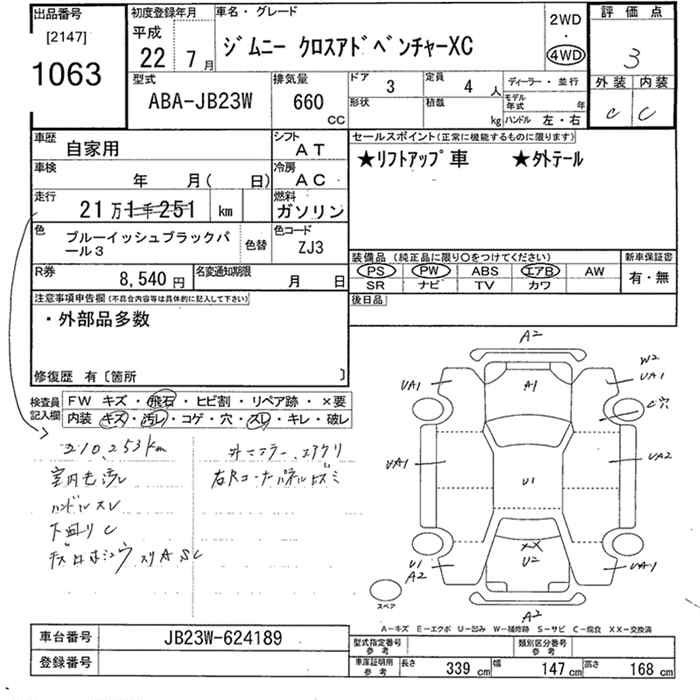 出品番号
[2147]
1063
初度登録年月
平成
22 7月
車名・グレード
ジムニー クロスアドベンチャーXC
2WD
・
4WD
評価点
3
外装 内装
C C
型式
ABA-JB23W
排気量
660
CC
ドア 3
定員 4 人
形状
積載 kg
ディーラー・並行
モデル年式 年
ハンドル 左・右
車歴
自家用
シフト
AT
車検
年 月( 日)
冷房
AC
走行
21万1千251 km
燃料
ガソリン
色
ブルーイッシュブラックパール3
色替
色コード
ZJ3
R券
8,540 円
名変通知期限
月 日
セールスポイント(正常に機能するものに限ります)
★リフトアップ車 ★外テール
装備品 (純正品に限り○をつけてください)
PS PW ABS エアB AW
SR ナビ TV カワ
新車保証書
有・無
後日品
注意事項申告欄(不具合内容等は具体的に記入して下さい)
・外部品多数
修復歴 有〔箇所 〕
検査員記入欄
FW キズ・飛石・ヒビ割・リペア跡・×要
内装 キズ・汚レ・コゲ・穴・スレ・キレ・破レ
210,253km
室内モ汚レ
ハンドルスレ
下廻りC
右Rコーナーパネル凹ミ
A2
W2
UA1
UA1
A1
C穴
UA1
UA2
U1
XX
U2
U1
A2
UA1
A2
スペア
A-キズ E-エクボ U-凹み W-補修跡 S-サビ C-腐食 XX-交換済
車台番号
JB23W-624189
登録番号
型式指定番号
参考
類別区分番号
参考
車庫証明用
参考
長さ 339 cm
幅 147 cm
高さ 168 cm